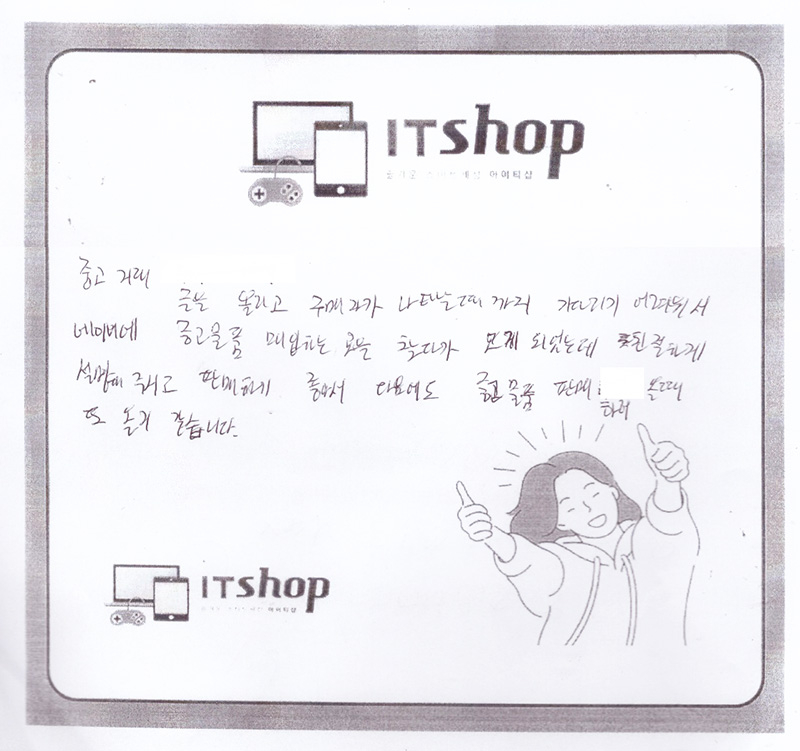 ITshop
아이티샵
중고 거래
글을 올리고 구매자가 나타날때 까지 기다리기 어려워서
네이버에 중고물품 매입하는 곳을 찾다가 오게 되었는데 친절하게
설명해 주시고 판매하게 좋아서 다음에도 중고물품 판매 하러 올때
또 올거 같습니다.
ITshop
아이티샵